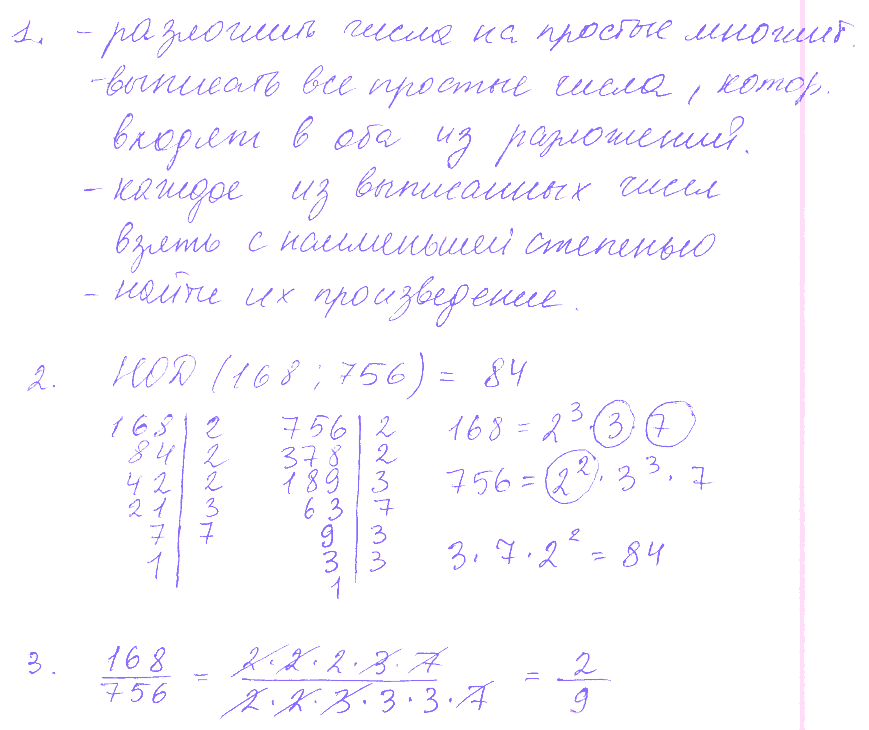 1. - разложить числа на простые множит.
- выписать все простые числа, котор.
входят в оба из разложений.
- каждое из выписанных чисел
взять с наименьшей степенью
- найти их произведение.
2. НОД (168; 756) = 84
168 | 2 756 | 2 168 = 2³ · 3 · 7
84 | 2 378 | 2
42 | 2 189 | 3 756 = 2² · 3³ · 7
21 | 3 63 | 7
7 | 7 9 | 3 3 · 7 · 2² = 84
1 | 3 | 3
1
3. 168/756 = 2·2·2·3·7/2·2·3·3·3·7 = 2/9